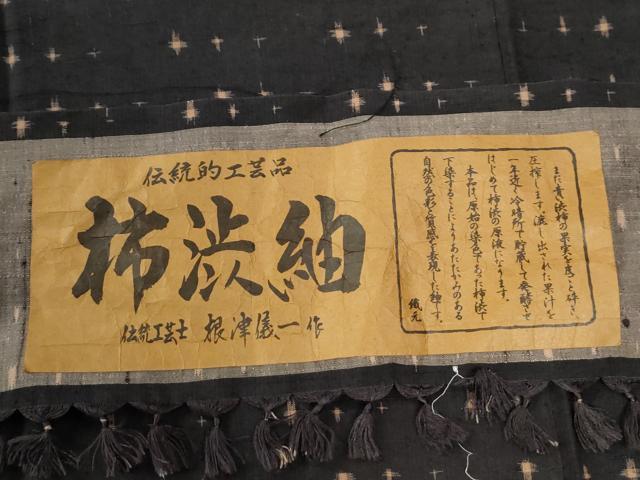 伝統的工芸品
柿渋紬
伝統工芸士 根津儀一作
まだ青い渋柿の果実を鹿ごと砕き、
圧搾します。滲し出された果汁を
一年近く冷暗所で貯蔵して発酵させ
はじめて柿渋の原液になります。
本品は、原始の染色であった柿渋で
下染することによりあたたかみのある
自然の色彩と質感を表現した紬です。
織元